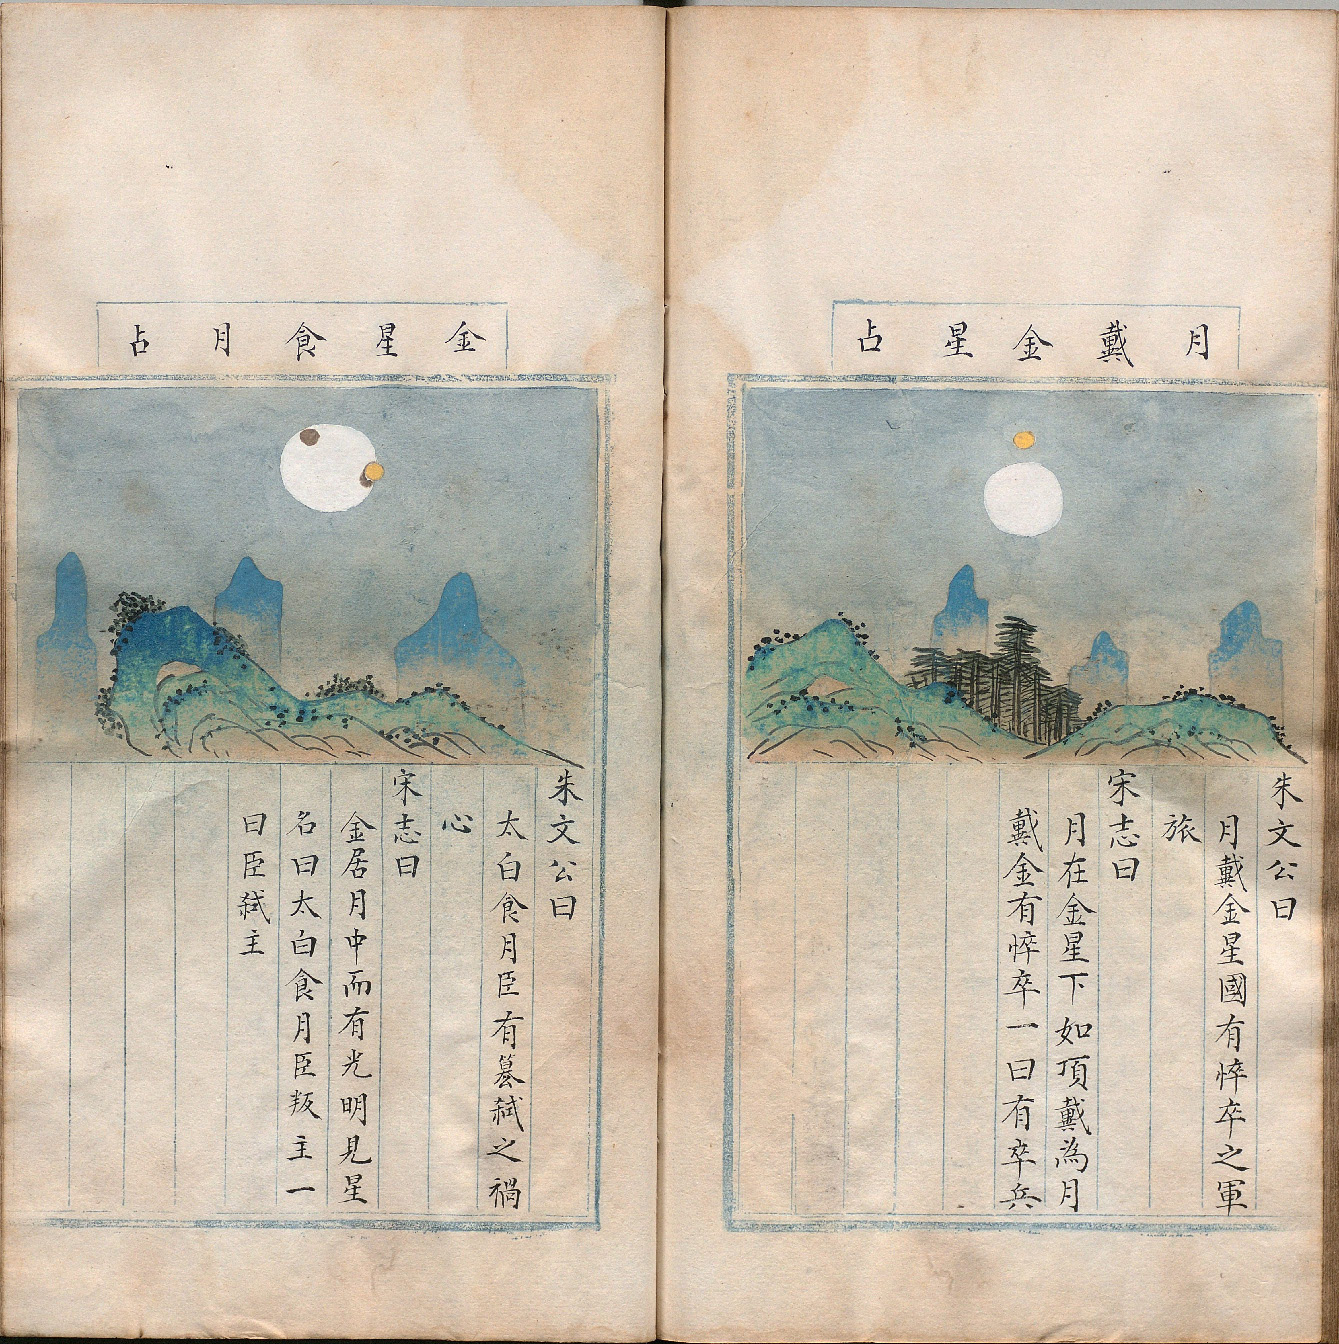 月戴金星占
朱文公曰
月戴金星國有悴卒之軍
旅
宋志曰
月在金星下如頂戴為月
戴金有悴卒一曰有卒兵
金星食月占
朱文公曰
太白食月臣有篡弑之禍
心
宋志曰
金居月中而有光明見星
名曰太白食月臣叛主一
曰臣弑主